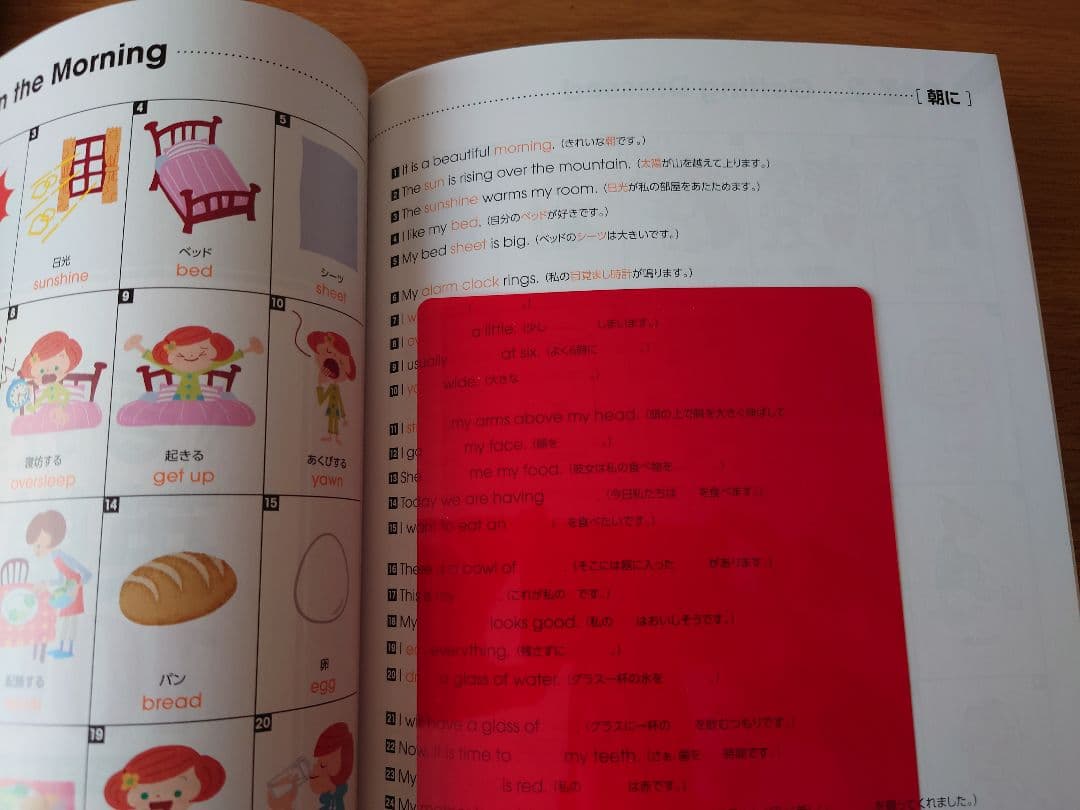 n the Morning
3
日光
sunshine
4
ベッド
bed
5
シーツ
sheet
8
寝坊する
oversleep
9
起きる
get up
10
あくびする
yawn
14
パン
bread
15
卵
egg
19
20
[ 朝に ]
1 It is a beautiful morning. (きれいな朝です。)
2 The sun is rising over the mountain. (太陽が山を越えて上ります。)
3 The sunshine warms my room. (日光が私の部屋をあたためます。)
4 I like my bed. (自分のベッドが好きです。)
5 My bed sheet is big. (ベッドのシーツは大きいです。)
6 My alarm clock rings. (私の目覚まし時計が鳴ります。)
7 I w 。)
8 I o a little. (少し しまいます。)
9 I usually at six. (よく6時に 。)
10 I ya wide. (大きな 。)
11 I st my arms above my head. (頭の上で腕を大きく伸ばして
12 I go my face. (顔を 。)
13 She me my food. (彼女は私の食べ物を 。)
14 Today we are having (今日私たちは を食べます。)
15 I want to eat an ( を食べたいです。)
16 There is a bowl of (そこには器に入った があります。)
17 This is my (これが私の です。)
18 My looks good. (私の はおいしそうです。)
19 I e everything. (残さずに 。)
20 I dr a glass of water. (グラス一杯の水を 。)
21 I will have a glass of (グラスに一杯の を飲むつもりです。)
22 Now, it is time to my teeth. (さあ、歯を 時間です。)
23 My is red. (私の は赤です。)
24 My てくれました。)